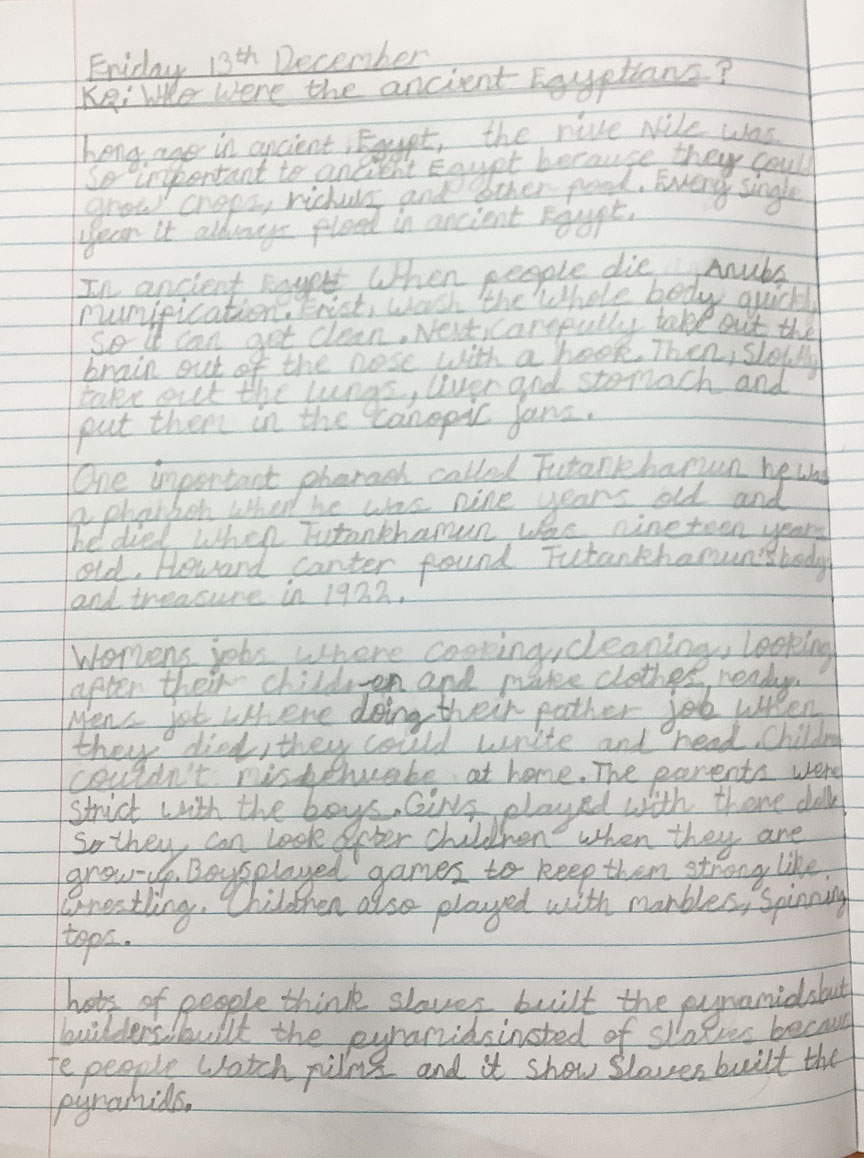 Friday 13th December
KQ: Who were the ancient Egyptians?
Long ago in ancient Egypt, the rive Nile was
so important to ancient Egypt because they could
grow crops, richuls and other food. Every single
year it always flood in ancient Egypt.
In ancient Egypt when people die Anubs
mumification. Frist, wash the whole body quickly
so it can get clean. Next, carefully take out the
brain out of the nose with a hook. Then, slowly
take out the lungs, liver and stomach and
put them in the canopic jars.
One important pharaoh called Tutankhamun he was
a pharaoh when he was nine years old and
he died when Tutankhamun was nineteen years
old. Howard carter found Tutankhamun's body
and treasure in 1922.
Womens jobs where cooking, cleaning, looking
after their children and make clothes ready.
Mens job where doing their father job when
they died, they could write and read. Children
couldn't misbehuabe at home. The parents were
strict with the boys. Girls played with there dolls
so they can look after children when they are
grow-up. Boys played games to keep them strong like
wrestling. Children also played with marbles, spinning
tops.
Lots of people think slaves built the pyramids but
builders built the pyramids insted of slaves becau
e people watch films and it show slaves built the
pyramids.